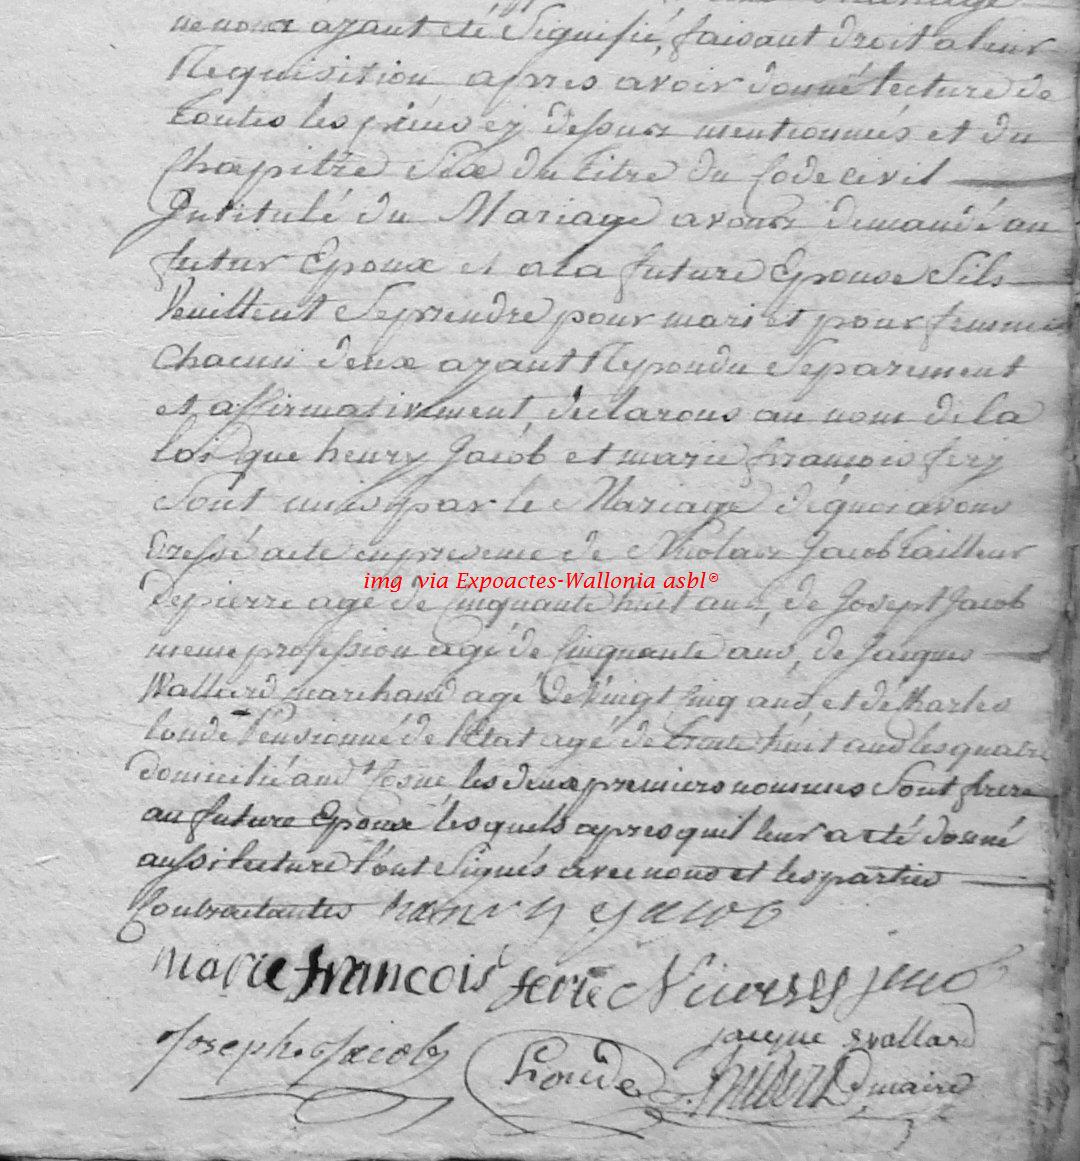 mariage
ne nous ayant été Signifié, faisant droit a leur
Requisition apres avoir donné lecture de
toutes les pieces cy dessus mentionnés et du
Chapitre Six du titre du Code civil
Intitulé du Mariage avons demandé au
futur Epoux et ala future Epouse Sils
Veuillent Seprendre pour mari et pour femme
Chacun deux ayant Repondu Separement
et affirmativement, declarons au nom de la
loi que henry Jacob et marie francois fery
Sont unis par le Mariage déquoi avons
dressé acte enpresence de Nicolas Jacob tailleur
depierre agé de Cinquante huit ans, de Josept Jacob
meme profession agé de Cinquante ans, de Jacques
Wallard marchand agé de Vingt Cinq ans et de Charles
londe Pensionné de l'Etat agé de trente huit ans lesquatre
domicilié les deux premiers nommes Sont frere
au future Epoux lesquels apres quil leur a eté donné
aussi lecture l'ont Signés avec nous et les parties
Contractantes henry Jacob
marie francois ferie Jacob
Joseph Jacob jacque wallard
Londe maire
img via Expoactes-Wallonia asbl®